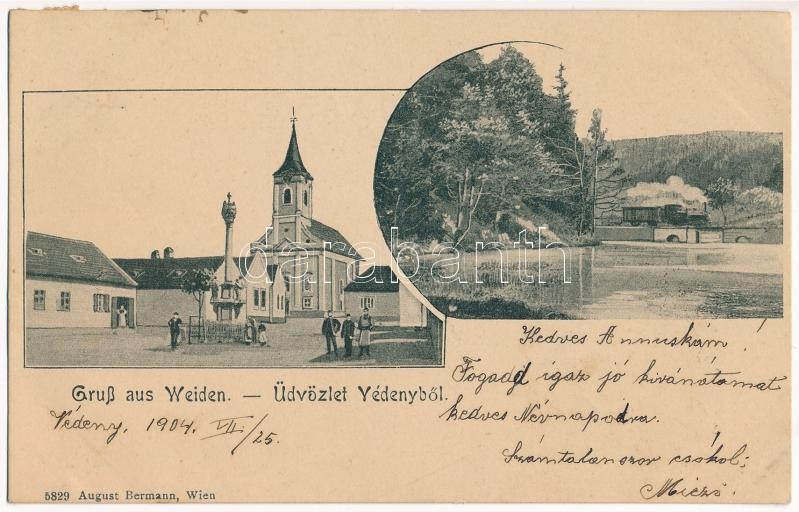 darabanth
Gruß aus Weiden. — Üdvözlet Védenyből.
Védeny, 1904. VII/25.
Kedves Annuskám!
Fogadd igaz jó kivánatamat
kedves Névnapodra.
Számtalanszor csókol;
Miczi.
5829 August Bermann, Wien